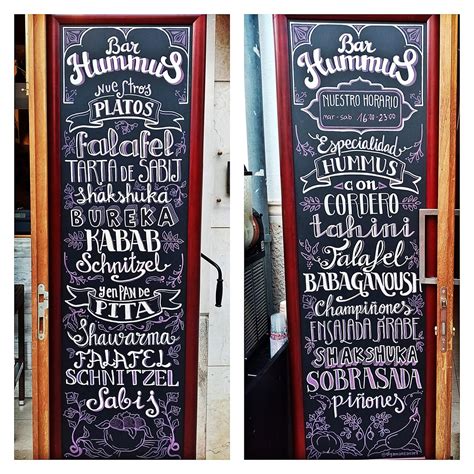 Bar
HummuS
Nuestros
PLATOS
falafel
TARTA DE SABIJ
shakshuka
BUREKA
KABAB
Schnitzel
y en PAN DE
PITA
Shawarma
FALAFEL
SCHNITZEL
Sabij
Bar
HummuS
NUESTRO HORARIO
mar-sab 16:00-23:00
Especialidad
HUMMUS
con
CORDERO
tahini
Falafel
BABAGANOUSH
Champiñones
ENSALADA ÁRABE
SHAKSHUKA
SOBRASADA
piñones